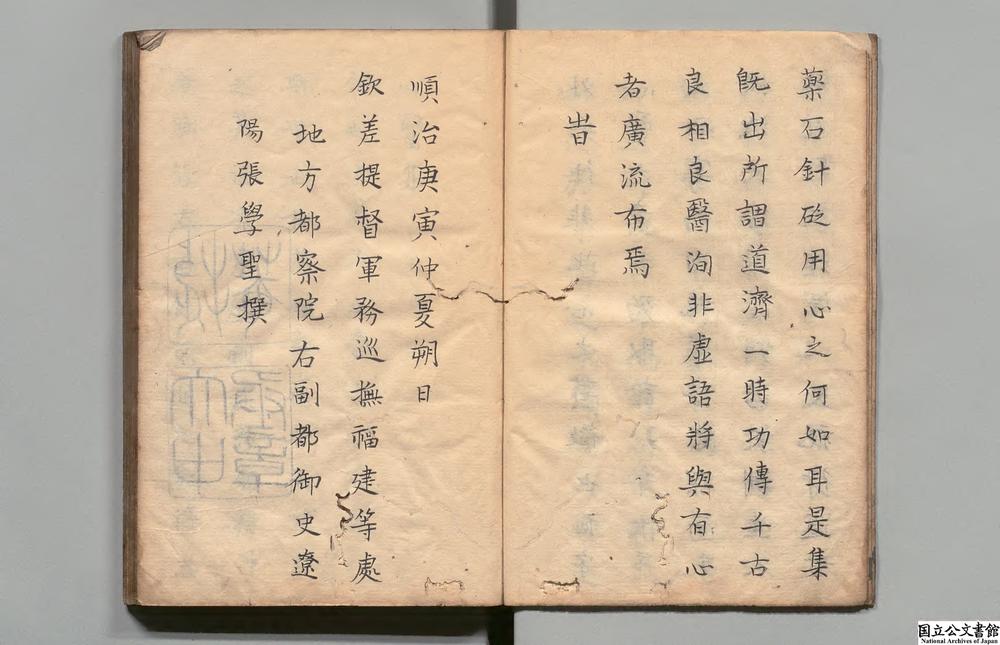 藥石針砭用怸之何如耳是集
旣出所謂道濟一時功傳千古
良相良醫洵非虛語將與有心
者廣流布焉
旹
順治庚寅仲夏朔日
欽差提督軍務巡撫福建等處
地方都察院右副都御史遼
陽張學聖撰
国立公文書館
National Archives of Japan